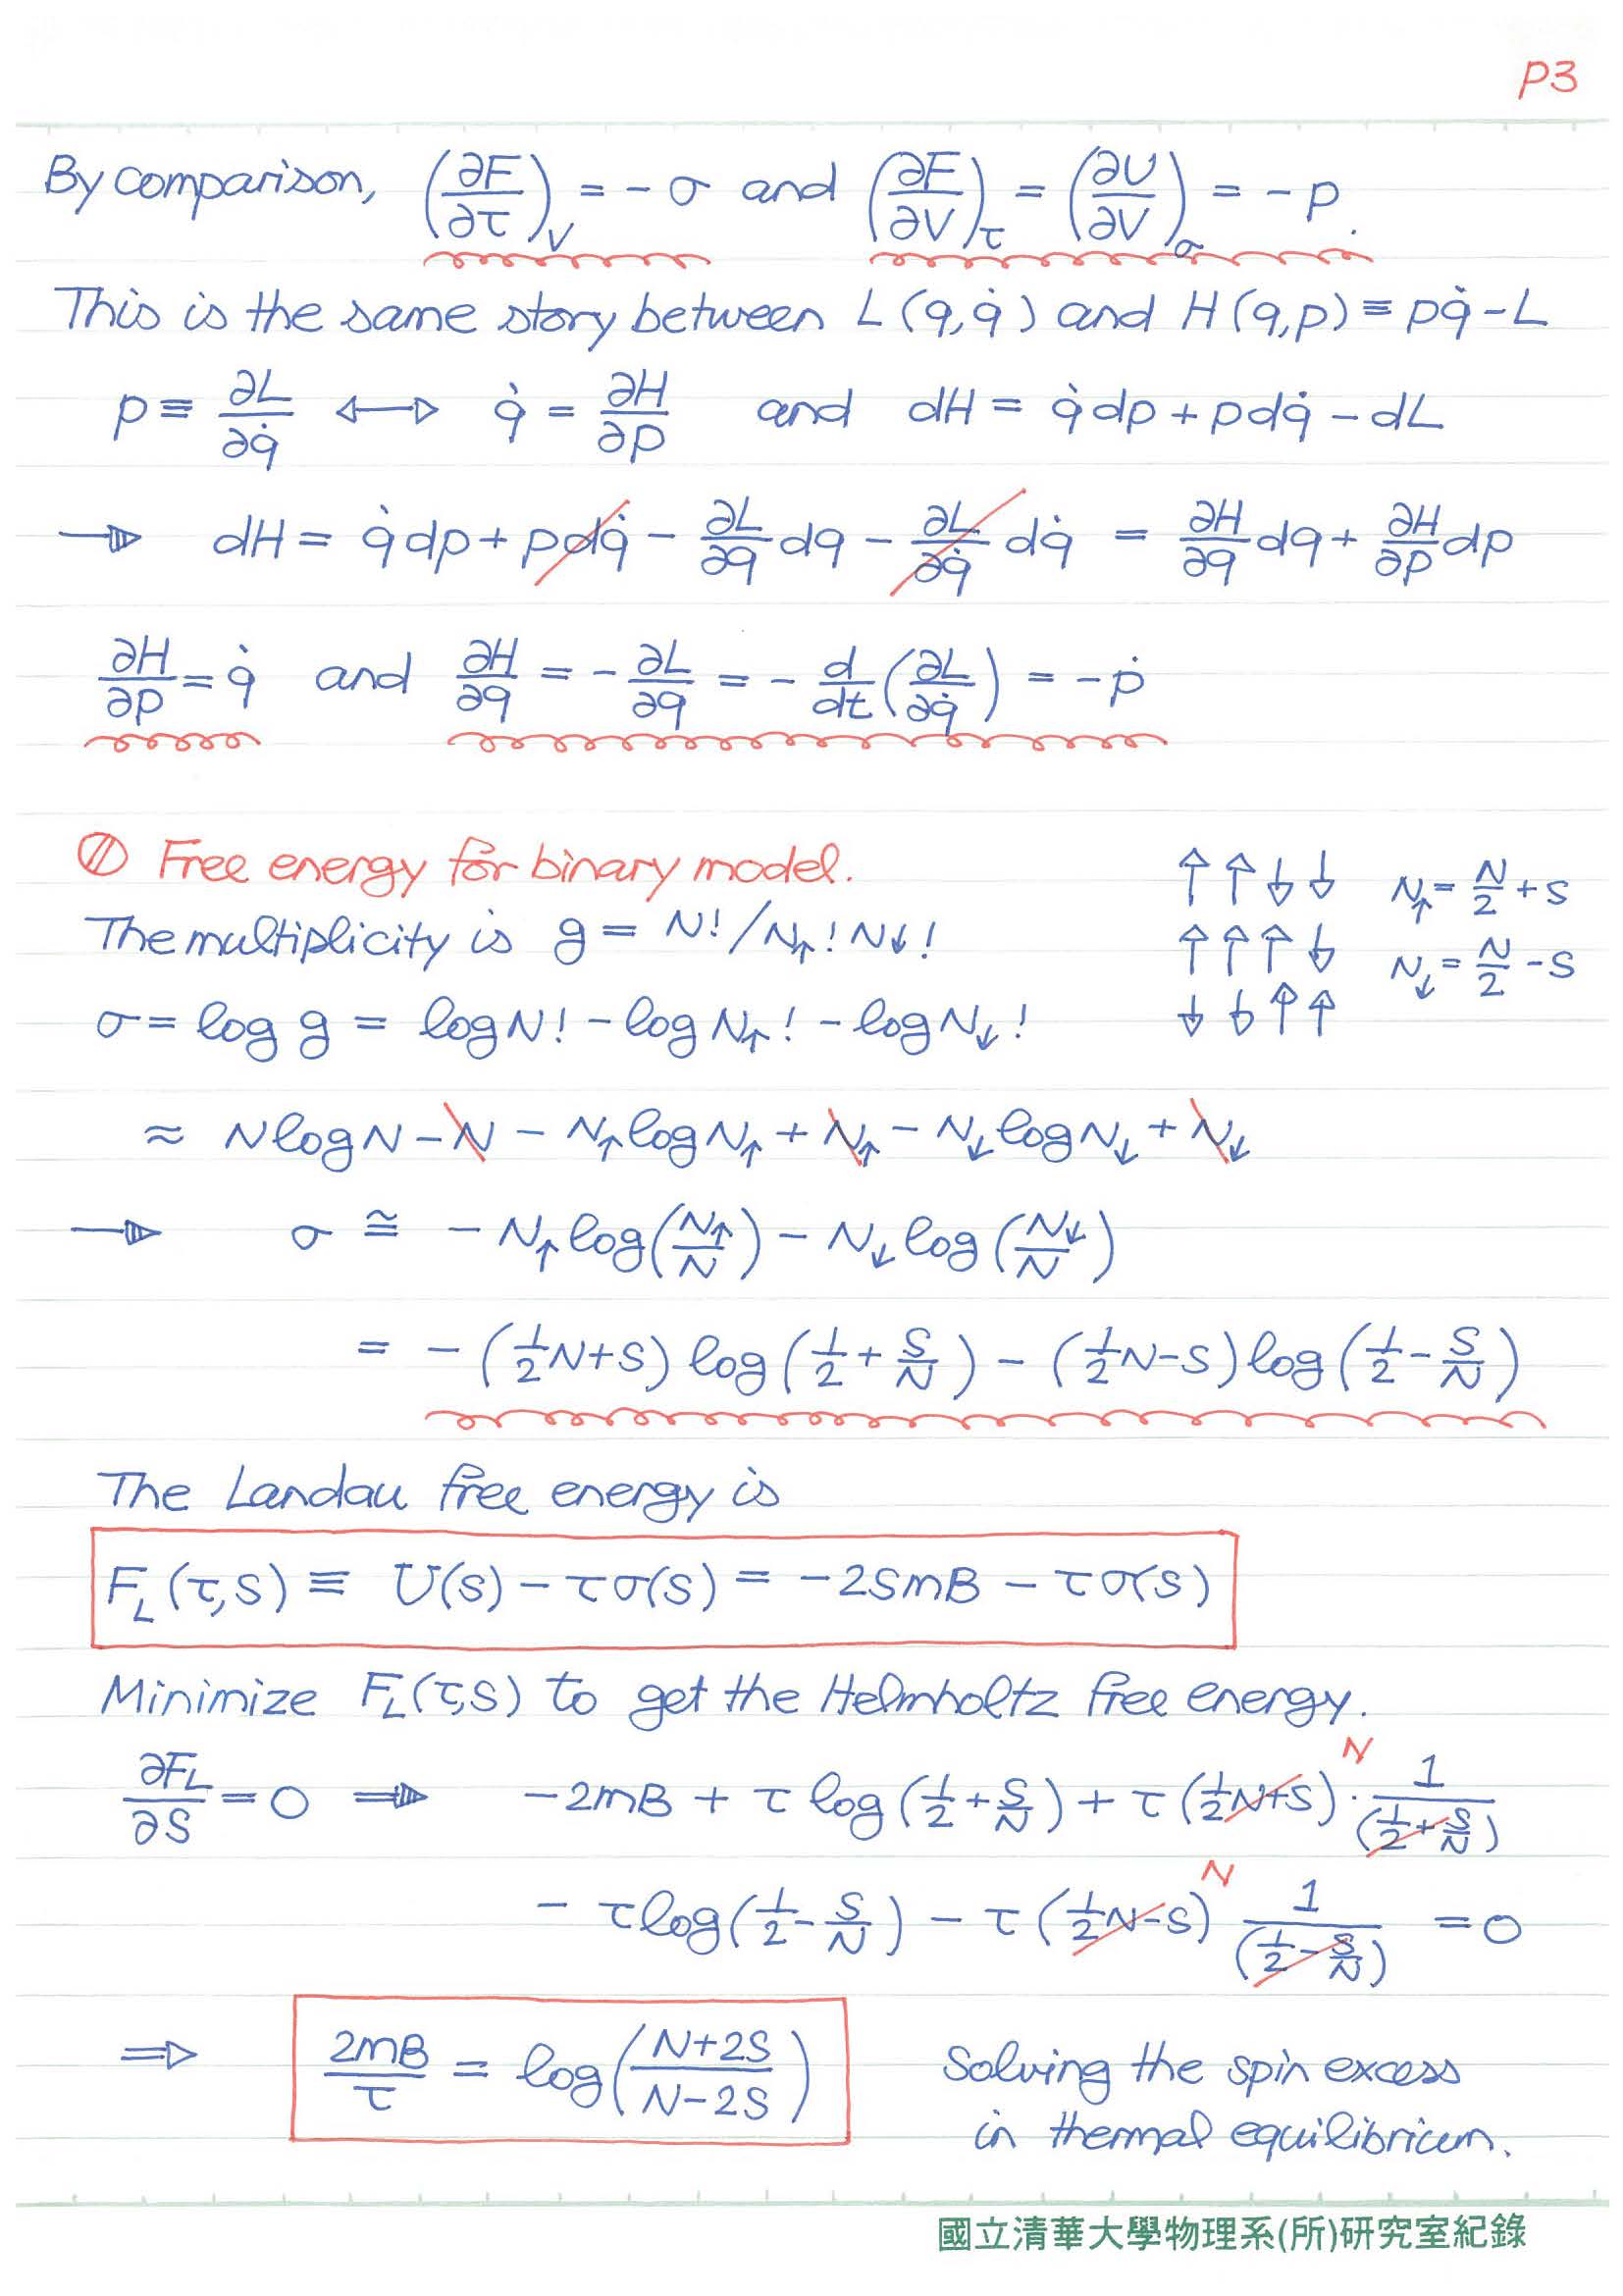 P3
By comparison, (∂F/∂τ)_V = - σ and (∂F/∂V)_τ = (∂U/∂V)_σ = - p.
This is the same story between L(q,q̇) and H(q,p) ≡ pq̇ - L
p ≡ ∂L/∂q̇ ↔ q̇ = ∂H/∂p and dH = q̇dp + pdq̇ - dL
→ dH = q̇dp + pdq̇ - ∂L/∂q dq - ∂L/∂q̇ dq̇ = ∂H/∂q dq + ∂H/∂p dp
∂H/∂p = q̇ and ∂H/∂q = - ∂L/∂q = - d/dt (∂L/∂q̇) = - ṗ
Free energy for binary model.
↑ ↑ ↓ ↓ N↑ = N/2 + s
The multiplicity is g = N! / N↑! N↓!
↑ ↑ ↑ ↓ N↓ = N/2 - s
σ = log g = log N! - log N↑! - log N↓!
↓ ↓ ↑ ↑
≈ N log N - N - N↑ log N↑ + N↑ - N↓ log N↓ + N↓
→ σ ≅ - N↑ log(N↑/N) - N↓ log(N↓/N)
= - (1/2 N+s) log(1/2 + s/N) - (1/2 N-s) log(1/2 - s/N)
The Landau free energy is
F_L(τ,s) ≡ U(s) - τσ(s) = -2smB - τσ(s)
Minimize F_L(τ,s) to get the Helmholtz free energy.
∂F_L/∂s = 0 ⇒ -2mB + τ log(1/2 + s/N) + τ(1/2 N+s) N · 1/(1/2 + s/N)
- τ log(1/2 - s/N) - τ(1/2 N-s) N 1/(1/2 - s/N) = 0
⇒ 2mB/τ = log((N+2s)/(N-2s)) Solving the spin excess
in thermal equilibrium.
國立清華大學物理系(所)研究室紀錄